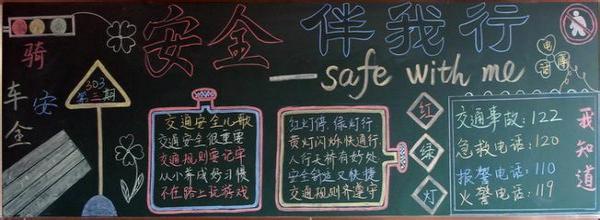 安全伴我行
safe with me
骑车安全
303
第二期
交通安全儿歌
交通安全很重要
交通规则要记牢
从小养成好习惯
不在路上玩游戏
红灯停,绿灯行
黄灯闪烁快通行
人行天桥有好处
安全舒适又快捷
交通规则齐遵守
红
绿
灯
电话
交通事故:122
急救电话:120
报警电话:110
火警电话:119
我知道